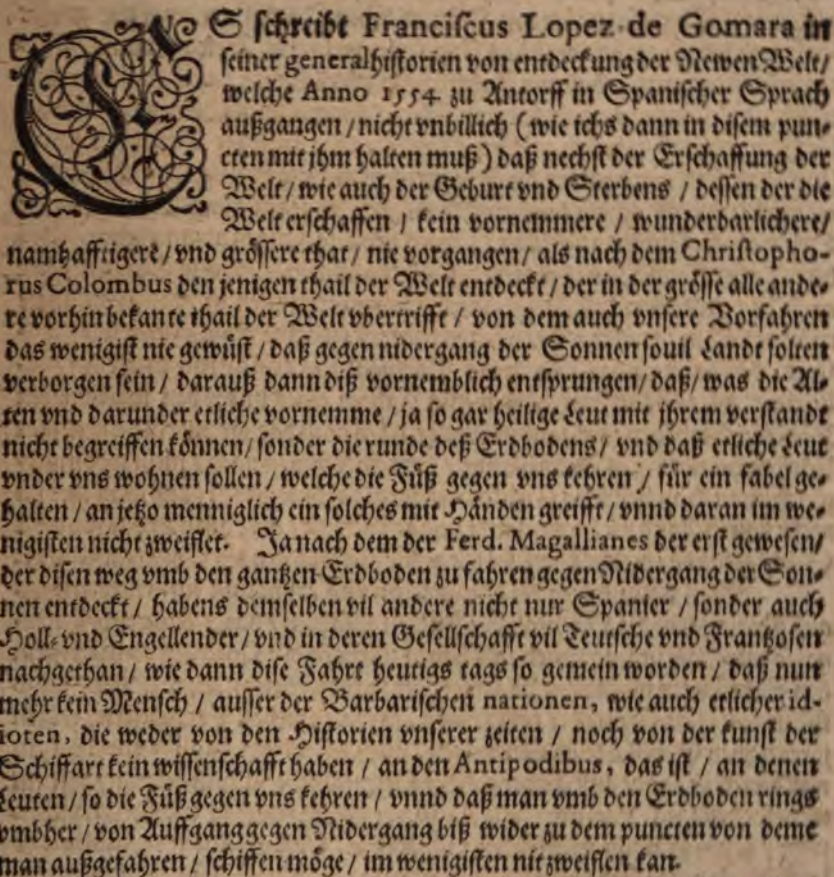 ES ſchreibt Franciſcus Lopez de Gomara in
ſeiner generalhiſtorien von entdeckung der Newen Welt/
welche Anno 1554 zu Antorff in Spaniſcher Sprach
außgangen / nicht vnbillich (wie ichs dann in diſem pun-
cten mit jhm halten muß) daß nechſt der Erſchaffung der
Welt/ wie auch der Geburt vnd Sterbens / deſſen der die
Welt erſchaffen / kein vornemmere / wunderbarlichere/
namhafftigere / vnd gröſſere that / nie vorgangen / als nach dem Chriſtopho-
rus Colombus den jenigen thail der Welt entdeckt / der in der gröſſe alle ande-
re vorhin bekante thail der Welt vbertrifft / von dem auch vnſere Vorfahren
das wenigiſt nie gewüſt / daß gegen nidergang der Sonnen souil Landt ſolten
verborgen ſein / darauß dann diß vornemblich entſprungen/ daß/ was die Al-
ten vnd darunder etliche vornemme / ja ſo gar heilige Leut mit jhrem verſtandt
nicht begreiffen können/ ſonder die runde deß Erdbodens / vnd daß etliche Leut
vnder vns wohnen ſollen / welche die Füß gegen vns kehren / für ein fabel ge-
halten / an jetzo menniglich ein ſolches mit Händen greifft / vnnd daran im we-
nigiſten nicht zweiflet. Ja nach dem der Ferd. Magallianes der erſt geweſen/
der diſen weg vmb den gantzen Erdboden zu fahren gegen Nidergang der Son-
nen entdeckt / habens demſelben vil andere nicht nur Spanier / ſonder auch
Holl- vnd Engellender / vnd in deren Geſellſchafft vil Teutſche vnd Frantzoſen
nachgethan / wie dann diſe Fahrt heutigs tags ſo gemein worden / daß nun
mehr kein Menſch / auſſer der Barbariſchen nationen, wie auch etlicher id-
ioten, die weder von den Hiſtorien vnſerer zeiten / noch von der kunſt der
Schiffart kein wiſſenſchafft haben / an den Antipodibus, das iſt / an denen
Leuten / ſo die Füß gegen vns kehren / vnnd daß man vmb den Erdboden rings
vmbher / von Auffgang gegen Nidergang biß wider zu dem puncten von deme
man außgefahren / ſchiffen möge / im wenigiſten nit zweiflen kan.